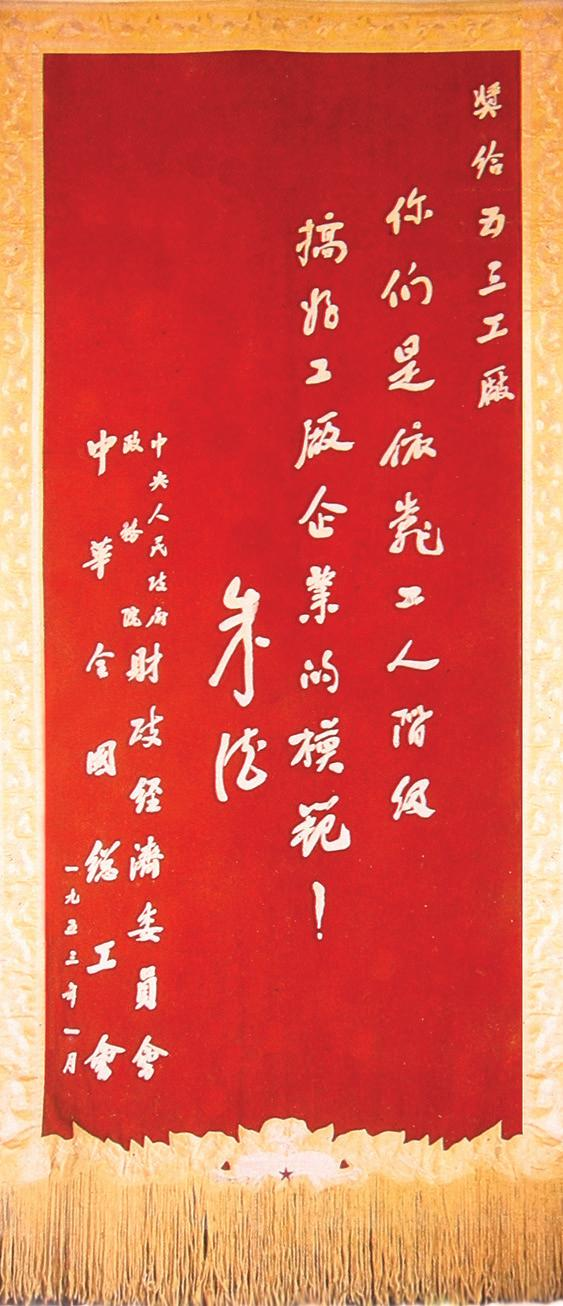 奬给五三工厰
你们是依靠工人阶级
搞好工厰企業的模範！
朱德
中央人民政府
政務院
財政经濟委員會
中華全國総工會
一九五三年一月